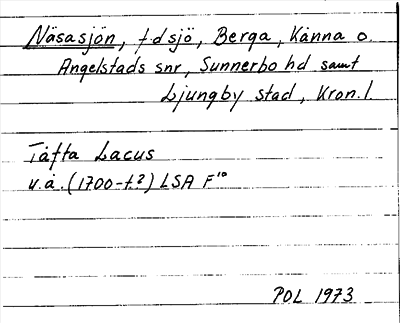 Näsasjön, f.d sjö, Berga, Kånna o.
Angelstads snr, Sunnerbo hd samt
Ljungby stad, Kron.l.
Täfta Lacus
u.å. (1700-t.?) LSA F¹⁰
POL 1973